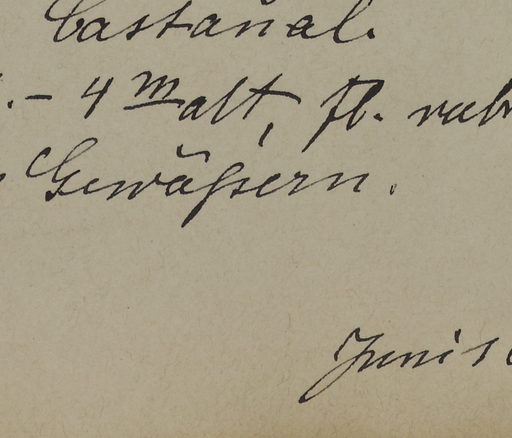 Castañal.
.– 4 m alt, fl. rub
Gewäſsern.
Juni 1